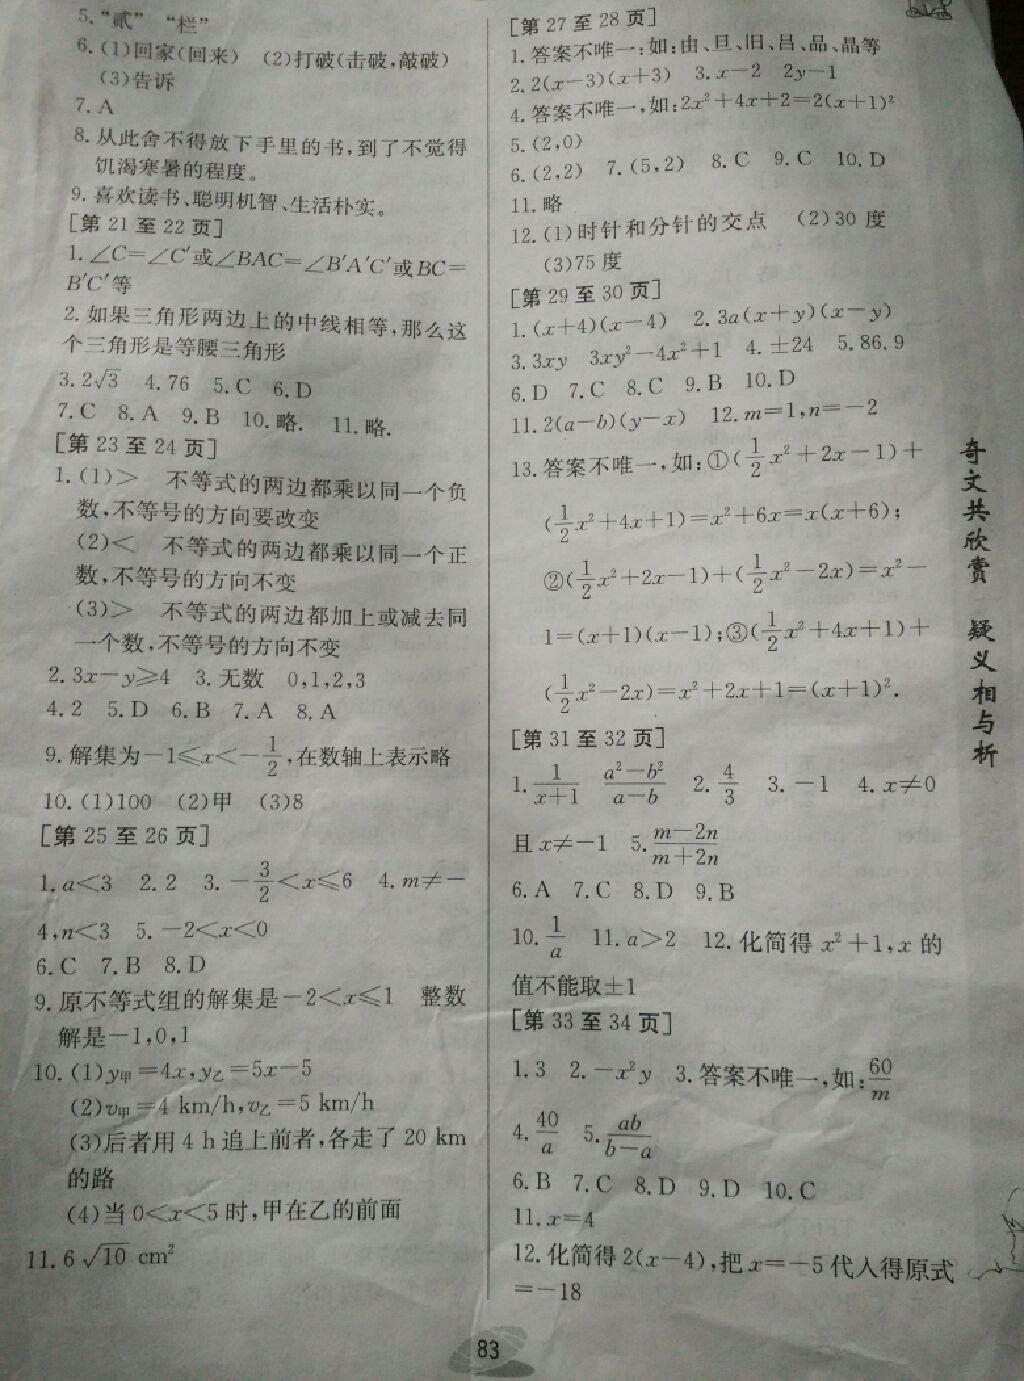 5.“贰”　“栏”
6.(1)回家(回来)　(2)打破(击破,敲破)
(3)告诉
7.A
8.从此舍不得放下手里的书,到了不觉得
饥渴寒暑的程度。
9.喜欢读书、聪明机智、生活朴实。
[第 21 至 22 页]
1.∠C=∠C′或∠BAC=∠B′A′C′或BC=
B′C′等
2.如果三角形两边上的中线相等,那么这
个三角形是等腰三角形
3.2√3　4.76　5.C　6.D
7.C　8.A　9.B　10.略.　11.略.
[第 23 至 24 页]
1.(1)>　不等式的两边都乘以同一个负
数,不等号的方向要改变
(2)<　不等式的两边都乘以同一个正
数,不等号的方向不变
(3)>　不等式的两边都加上或减去同
一个数,不等号的方向不变
2.3x-y≥4　3.无数　0,1,2,3
4.2　5.D　6.B　7.A　8.A
9.解集为-1≤x<-1/2,在数轴上表示略
10.(1)100　(2)甲　(3)8
[第 25 至 26 页]
1.a<3　2.2　3.-3/2<x≤6　4.m≠-
4,n<3　5.-2<x<0
6.C　7.B　8.D
9.原不等式组的解集是-2<x≤1　整数
解是-1,0,1
10.(1)y甲=4x,y乙=5x-5
(2)v甲=4 km/h,v乙=5 km/h
(3)后者用 4 h 追上前者,各走了 20 km
的路
(4)当 0<x<5 时,甲在乙的前面
11.6√10 cm²
[第 27 至 28 页]
1.答案不唯一:如:由、旦、旧、吕、品、晶等
2.2(x-3)(x+3)　3.x-2　2y-1
4.答案不唯一,如:2x²+4x+2=2(x+1)²
5.(2,0)
6.(2,2)　7.(5,2)　8.C　9.C　10.D
11.略
12.(1)时针和分针的交点　(2)30 度
(3)75 度
[第 29 至 30 页]
1.(x+4)(x-4)　2.3a(x+y)(x-y)
3.3xy　3xy²-4x²+1　4.±24　5.86.9
6.D　7.C　8.C　9.B　10.D
11.2(a-b)(y-x)　12.m=1,n=-2
13.答案不唯一,如:①(1/2x²+2x-1)+
(1/2x²+4x+1)=x²+6x=x(x+6);
②(1/2x²+2x-1)+(1/2x²-2x)=x²-
1=(x+1)(x-1);③(1/2x²+4x+1)+
(1/2x²-2x)=x²+2x+1=(x+1)².
[第 31 至 32 页]
1.1/(x+1)　(a²-b²)/(a-b)　2.4/3　3.-1　4.x≠0
且 x≠-1　5.(m-2n)/(m+2n)
6.A　7.C　8.D　9.B
10.1/a　11.a>2　12.化简得 x²+1,x 的
值不能取±1
[第 33 至 34 页]
1.3　2.-x²y　3.答案不唯一,如:60/m
4.40/a　5.ab/(b-a)
6.B　7.C　8.D　9.D　10.C
11.x=4
12.化简得2(x-4),把x=-5代入得原式
=-18
奇文共欣赏　疑义相与析
83